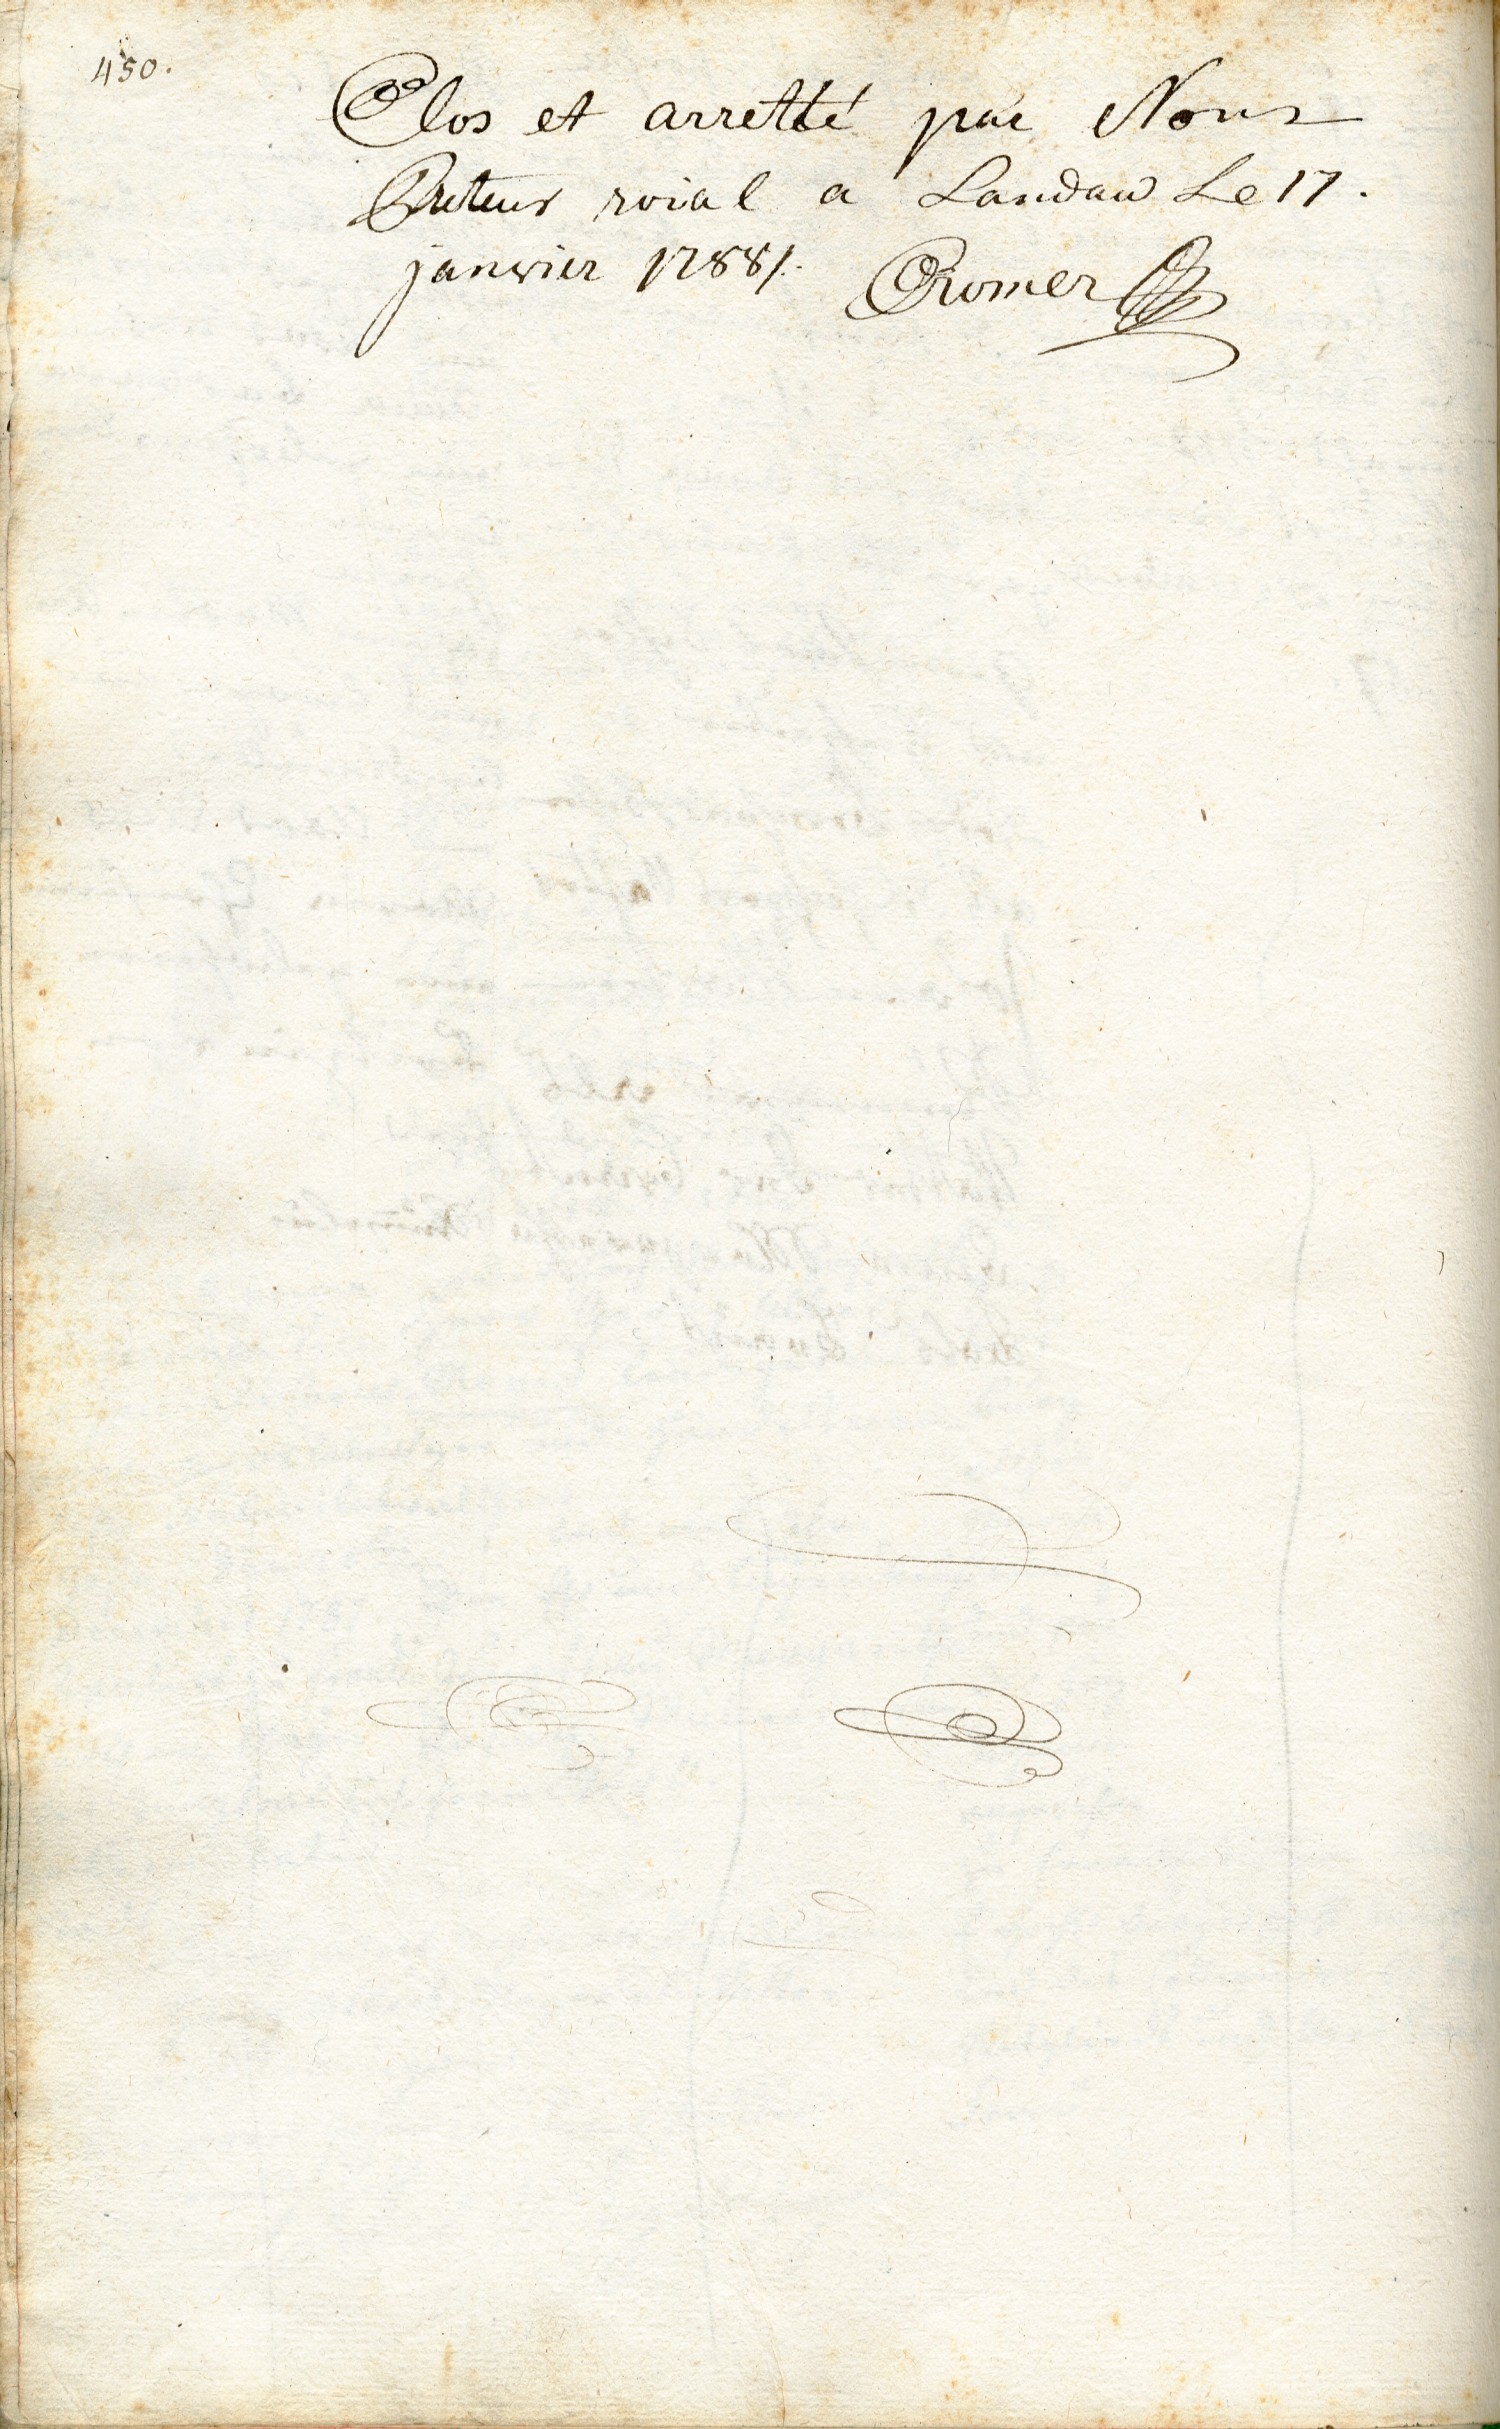 450.
Clos et arretté par Nous
Preteur roial a Landau Le 17.
janvier 1788/.
Cromer